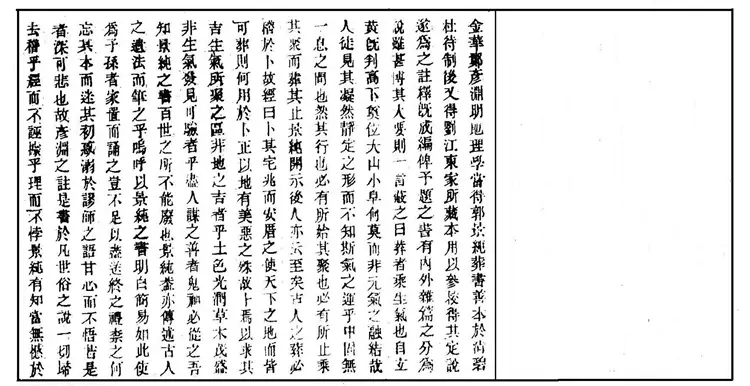 金華鄭彦淵明地理學嘗得郭景純葬書善本於
杜待制後又得劉江東家所藏本用以參挍得其定說
遂為之註釋既成編俾予題之書有内外雜篇之分為
說雖甚博其大要則一言蔽之曰葬者乗生氣也自立
黄既判高下奠位大山小阜何莫而非元氣之融結哉
人徒見其凝然静定之形而不知斯氣之運乎中固無
一息之間也然其行也必有所始其聚也必有所止乗
其聚而葬其止景純開示後人亦云至矣古人之葬必
稽於卜故經曰卜其宅兆而安厝之使天下之地而皆
可葬則何用於卜正以地有美惡之殊故卜焉以求其
吉生氣所聚之區非地之吉者乎土色光潤草木茂盛
非生氣發見可驗者乎盡人謀之善者鬼神必從之吾
知景純之書百世之所不能廢也景純蓋亦傳述古人
之遺法而筆之乎嗚呼以景純之書明白簡易如此使
為子孫者家置而誦之豈不足以盡送終之禮柰之何
忘其本而迷其初惑溺於謬師之語甘心而不悟皆是
者深可悲也故彦淵之註是書於凡世俗之說一切掃
去稽乎經而不誣揆乎理而不悖景純有知當無憾於